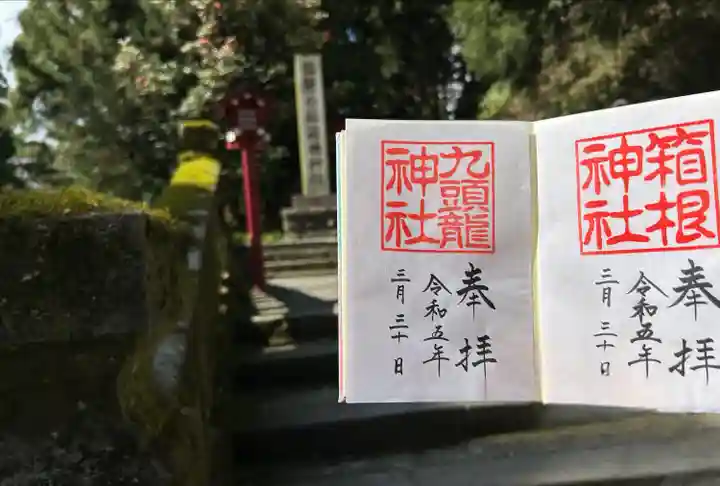 箱根
神社
奉拝
令和五年
三月三十日
九頭龍
神社
奉拝
令和五年
三月三十日